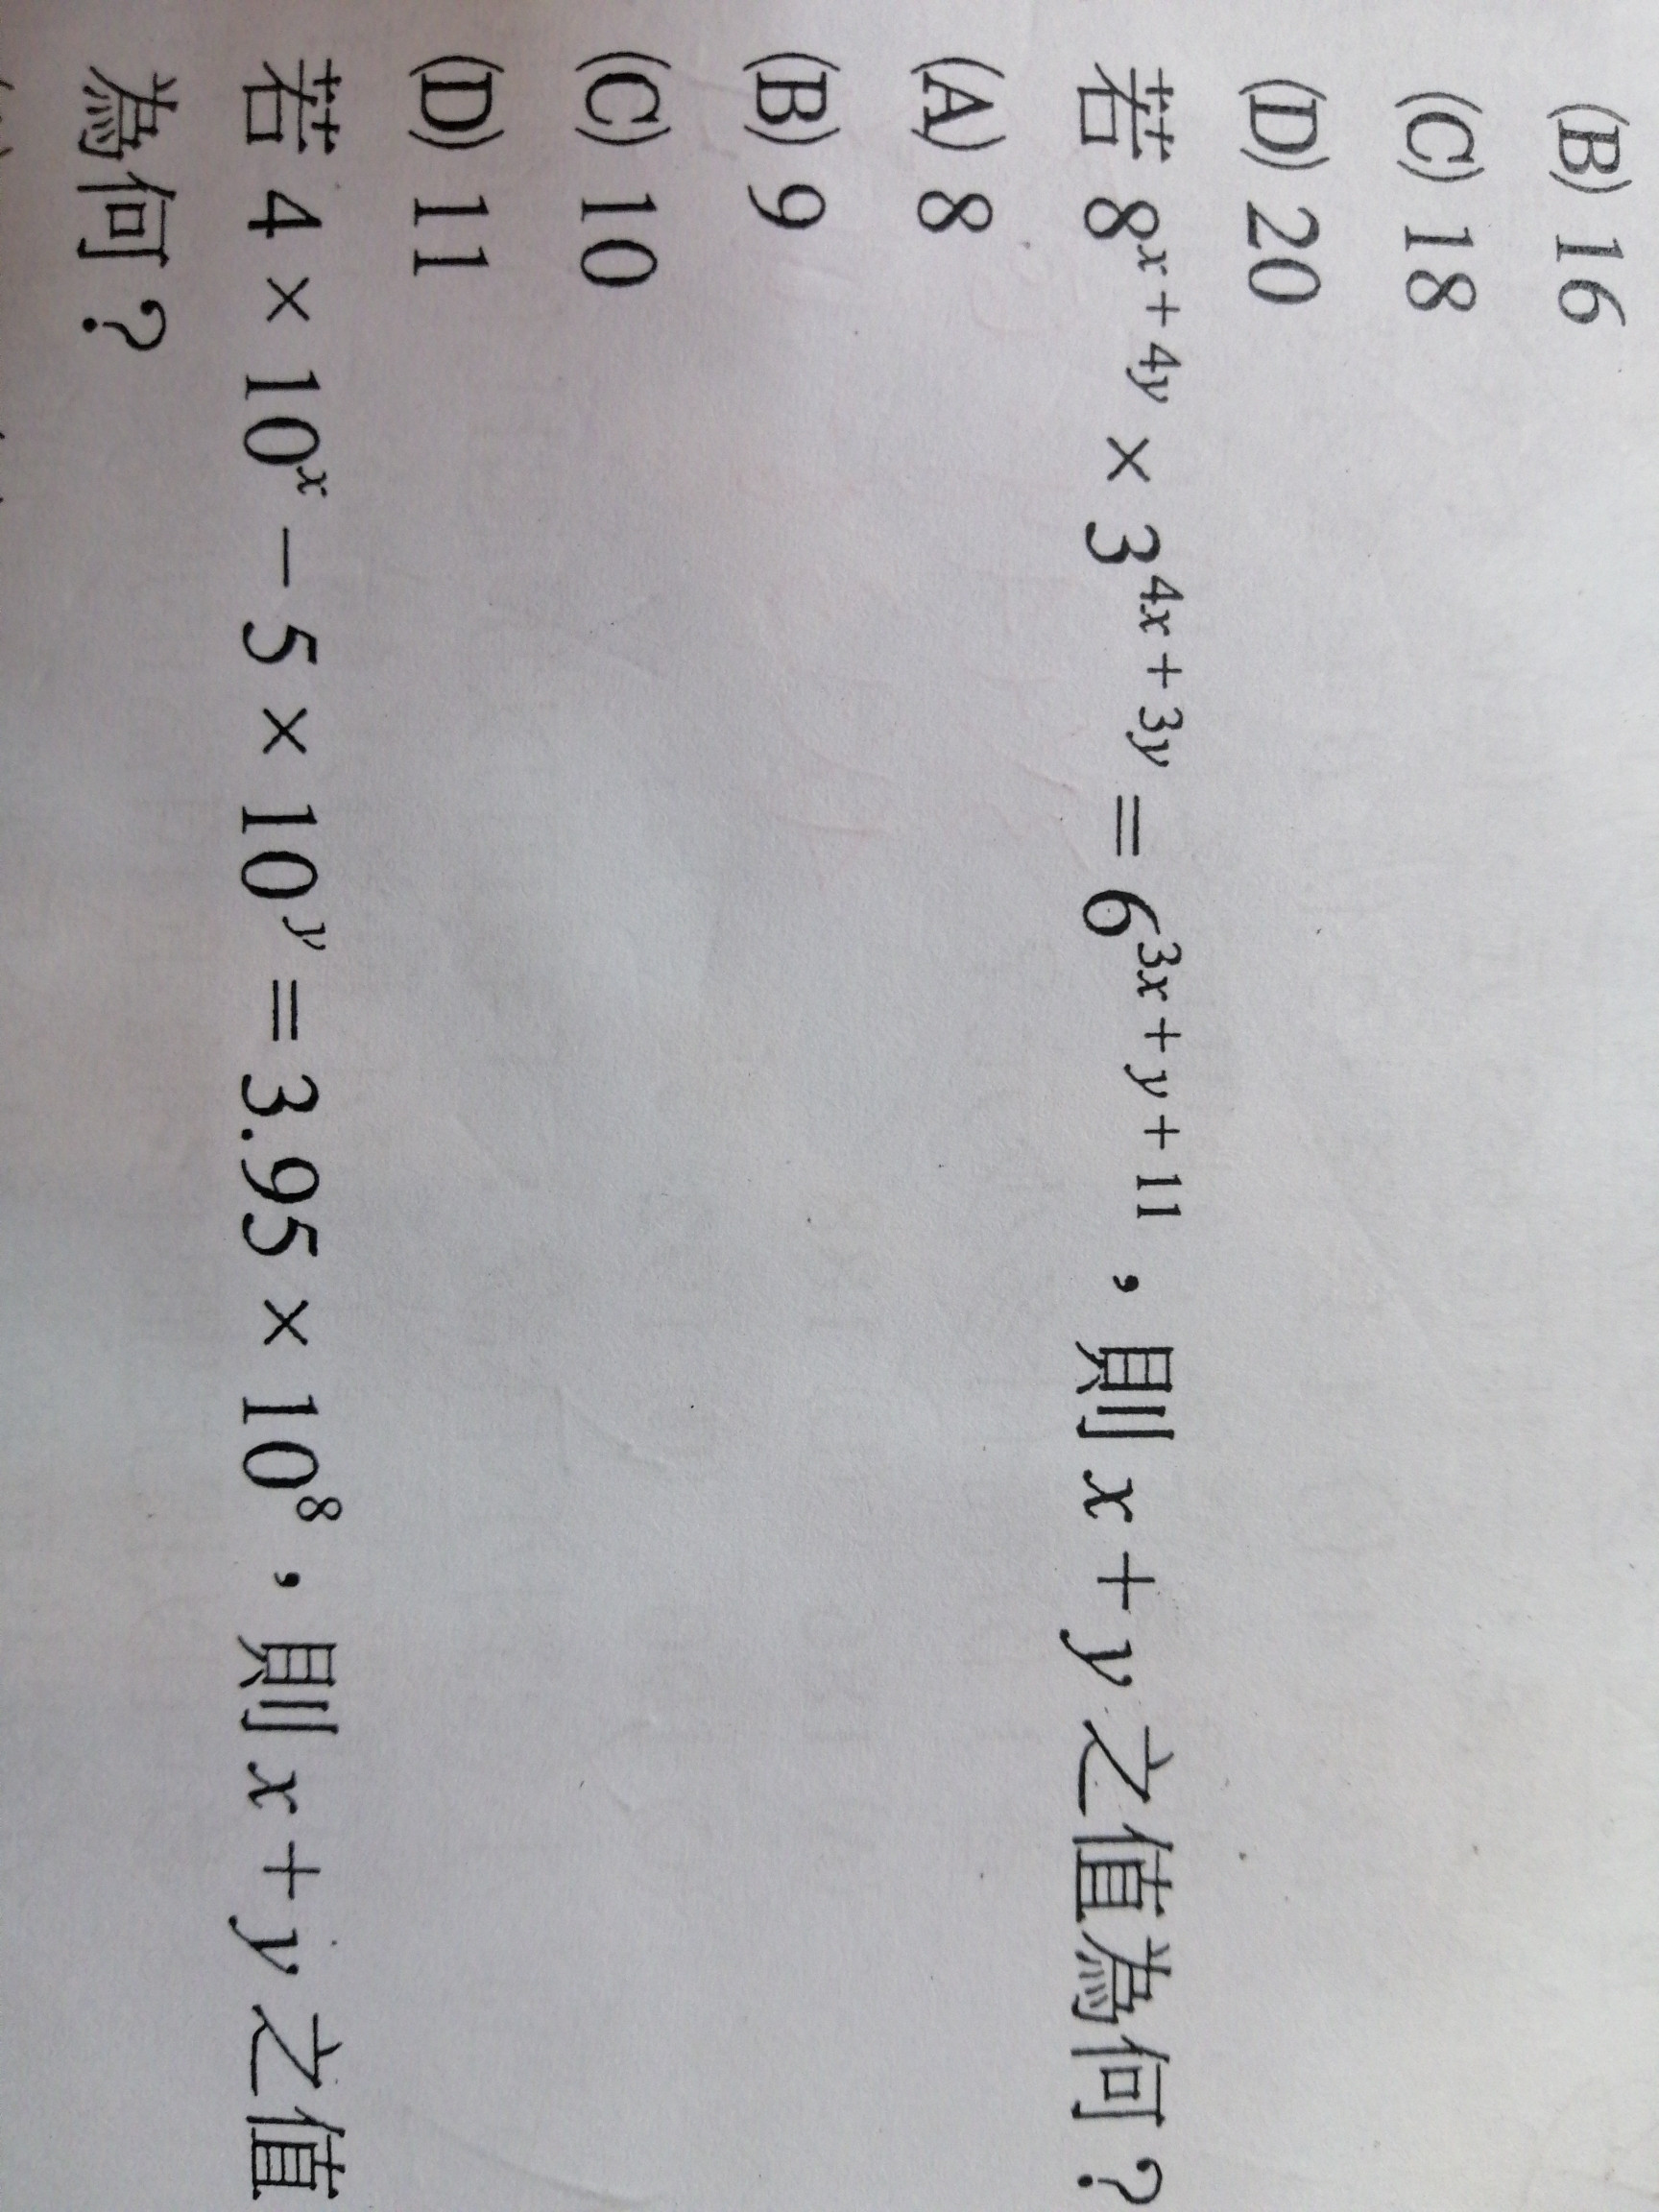 (B) 16
(C) 18
(D) 20
若 8^{x+4y} × 3^{4x+3y} = 6^{3x+y+11}，則 x + y 之值為何？
(A) 8
(B) 9
(C) 10
(D) 11
若 4 × 10^x − 5 × 10^y = 3.95 × 10^8，則 x + y 之值
為何？